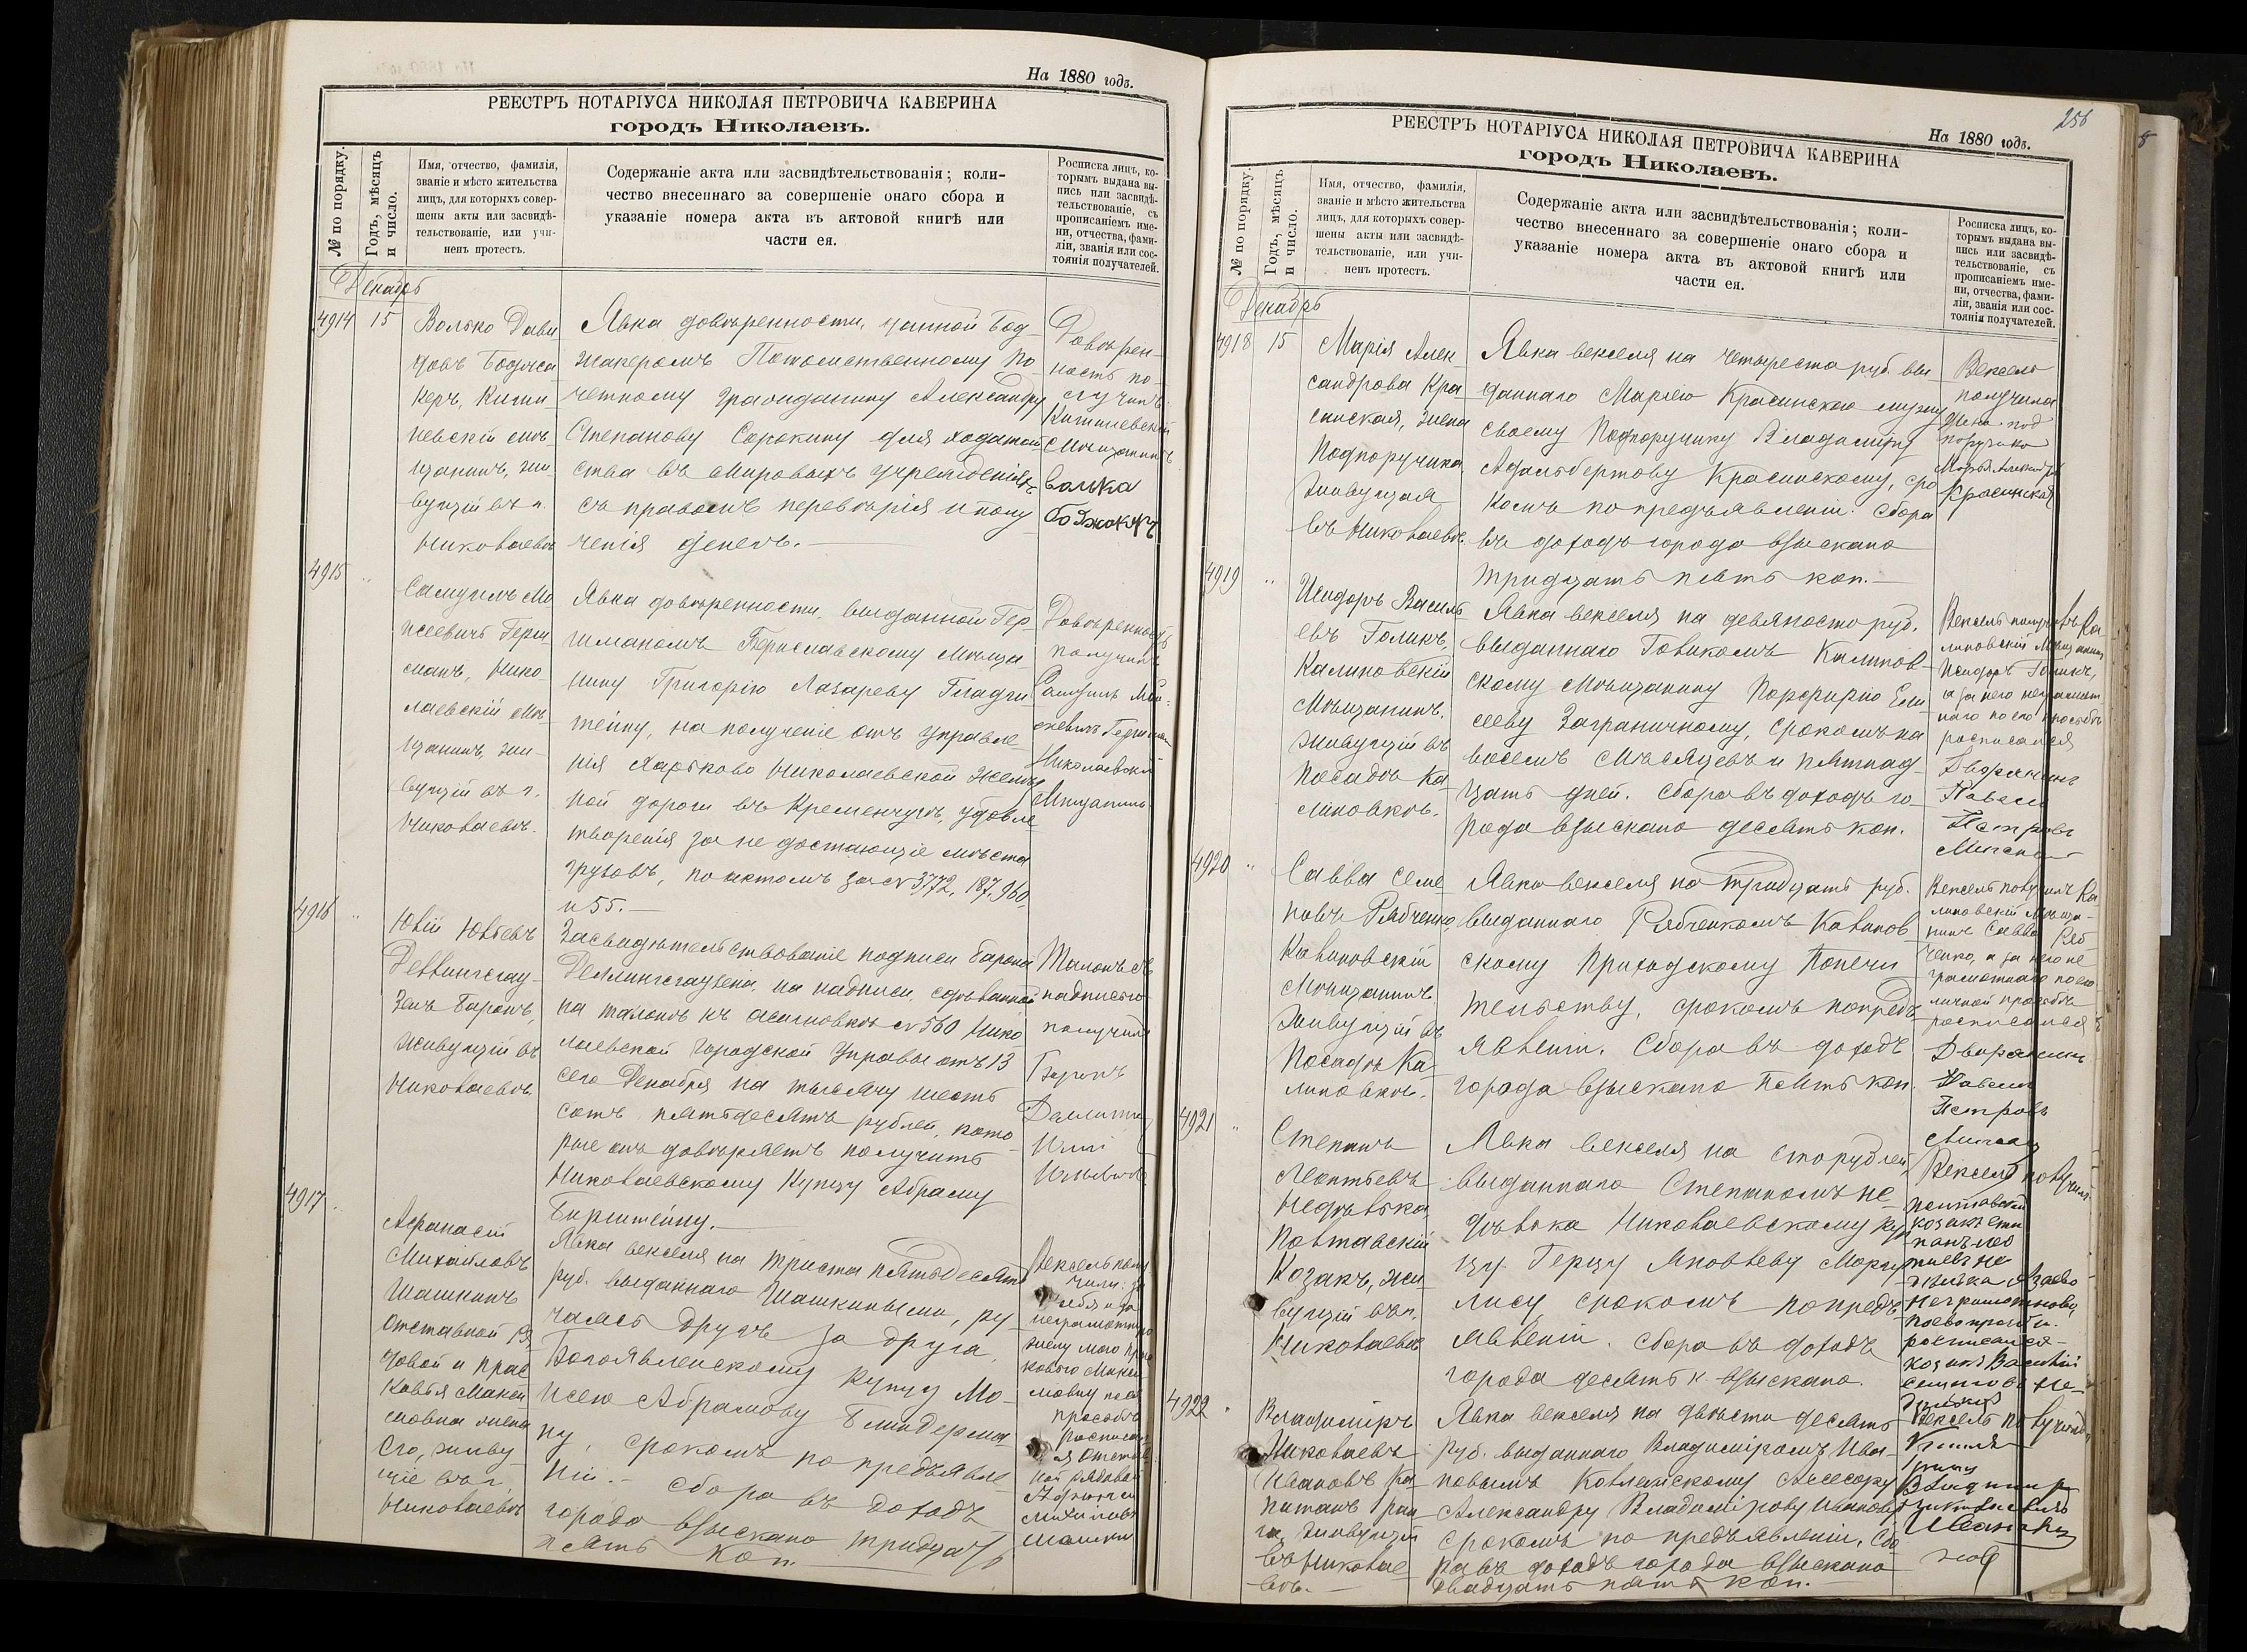 На 1880 годъ.
РЕЕСТРЪ НОТАРІУСА НИКОЛАЯ ПЕТРОВИЧА КАВЕРИНА
городъ Николаевъ.
№ по порядку.
Годъ, мѣсяцъ
и число.
Имя, отчество, фамилія,
званіе и мѣсто жительства
лицъ, для которыхъ совер-
шены акты или засвидѣ-
тельствованіе, или учи-
ненъ протестъ.
Содержаніе акта или засвидѣтельствованія; коли-
чество внесеннаго за совершеніе онаго сбора и
указаніе номера акта въ актовой книгѣ или
части ея.
Росписка лицъ, ко-
торымъ выдана вы-
пись или засвидѣ-
тельствованіе, съ
прописаніемъ име-
ни, отчества, фами-
ліи, званія или сос-
тоянія получателей.
Декабрь
4914
15
Волько Дави
довъ Боджа
керъ, Киши
невскій мѣ
щанинъ, жи-
вущій въ г.
Николаевѣ
Явка довѣренности, данной Бод
жакеромъ Потомственному По
четному Гражданину Александру
Степанову Сорокину для ходатай
ства въ Мировыхъ Учрежденіяхъ
съ правомъ перевѣрія и полу
ченія денегъ.
Довѣрен-
ность по-
лучилъ
Кишиневскій
Мѣщанинъ
Волька
4915
"
Самуилъ Мо
исеевичъ Герш
манъ, Нико
лаевскій Мѣ
щанинъ, жи-
вущій въ г.
Николаевѣ.
Явка довѣренности, выданной Гер-
шманомъ Бериславскому Мѣща
нину Григорію Лазареву Гладш
тейну, на полученіе отъ Управле
нія Харьково Николаевской Желѣз
ной дороги въ Кременчугѣ, удовле
творенія за не достающіе мѣста
грузовъ, по актомъ за № 3772, 187, 960,
и 55.
Довѣренность
получилъ
Самуилъ Мой-
Николаевскій
Мѣщанинъ
4916
"
Юлій Юльевъ
Деллингсгау-
зенъ Баронъ,
живущій въ
Николаевѣ.
Засвидѣтельствованіе подписи барона
Деллингсгаузена, на надписи, сдѣланной
на талонѣ къ асигновкѣ № 560 Нико
лаевской Городской Управы отъ 13
сего Декабря на тысячу шесть
сотъ пятьдесятъ рублей, кото
рые онъ довѣряетъ получить
Николаевскому Купцу Абраму
Бирштейну.
Талонъ съ
надписью
получилъ
Баронъ
4917
"
Афанасій
Михайловъ
Шашкинъ
Отставной Ря
довой и Прас
ковья Макси
мовна жена
его, живу-
щіе въ г.
Николаевѣ
Явка векселя на триста пятьдесятъ
руб. выданнаго Шашкиными, ру
чаясь другъ за друга,
Богоявленскому купцу Мо-
исею Абрамову Блиндерма-
ну, срокомъ по предъявле
ніи. – Сбора въ доходъ
города взыскано тридцать
пять коп.
Вексель полу
чили: за
себя и за
неграмотную
жену мою Прас
ковью Макси
мовну по ея
просьбѣ
росписал
ся Отстав
ной рядовой
Афанасій
Михайловъ
Шашкинъ
256
На 1880 годъ.
РЕЕСТРЪ НОТАРІУСА НИКОЛАЯ ПЕТРОВИЧА КАВЕРИНА
городъ Николаевъ.
№ по порядку.
Годъ, мѣсяцъ
и число.
Имя, отчество, фамилія,
званіе и мѣсто жительства
лицъ, для которыхъ совер-
шены акты или засвидѣ-
тельствованіе, или учи-
ненъ протестъ.
Содержаніе акта или засвидѣтельствованія; коли-
чество внесеннаго за совершеніе онаго сбора и
указаніе номера акта въ актовой книгѣ или
части ея.
Росписка лицъ, ко-
торымъ выдана вы-
пись или засвидѣ-
тельствованіе, съ
прописаніемъ име-
ни, отчества, фами-
ліи, званія или сос-
тоянія получателей.
Декабрь
4918
15
Марія Алек
сандрова Кра
синская, жена
Подпоручика
живущая
въ Николаевѣ.
Явка векселя на четыреста руб. вы
даннаго Маріею Красинскою мужу
своему Подпоручику Владиміру
Адальбертову Красинскому, сро
комъ по предъявленіи. Сбора
въ доходъ города взыскано
тридцать пять коп.
Вексель
получила
жена под
поручика
Марья Александр
Красинская
4919
"
Исидоръ Василь
евъ Голикъ,
Калиновскій
Мѣщанинъ.
Живущій въ
Посадѣ Ка
линовкѣ.
Явка векселя на девяносто руб.
выданнаго Голикомъ Калинов
скому Мѣщанину Порфирію Ели
сееву Заграничному, срокомъ на
восемь мѣсяцевъ и пятнад-
цать дней. Сбора въ доходъ го-
рода взыскано десять коп.
Вексель получилъ Ка
линовскій Мѣщанинъ
Исидоръ Голикъ,
а за него неграмот
наго по его просьбѣ
росписался
Дворянинъ
Павелъ
Петровъ
4920
"
Савва Семе
новъ Рябченко,
Калиновскій
Мѣщанинъ
Живущій въ
Посадѣ Ка
линовкѣ.
Явка векселя на тридцать руб.
выданнаго Рябченкомъ Калинов
скому Приходскому Попечи
тельству, срокомъ по предъ
явленіи. Сбора въ доходъ
города взыскано пять коп.
Вексель получилъ Ка
линовскій Мѣща-
нинъ Савва Ряб
ченко, а за него не
грамотнаго по его
личной просьбѣ
росписался
Дворянинъ
Павелъ
Петровъ
4921
"
Степанъ
Леонтьевъ
Недѣвлька
Полтавскій
Козакъ, жи-
вущій въ г.
Николаевѣ
Явка векселя на сто рублей,
выданнаго Степаномъ Не-
Николаевскому ку
пцу Герцу Яковлеву Моргу
лису, срокомъ по предъ
явленіи. Сбора въ доходъ
города десять к. взыскано.
Вексель получилъ
Полтавскій
козакъ Сте
панъ Лео
нтьевъ Не
неграмотнова
по ево просьби
росписался
козакъ Василій
Семеновъ Не-
4922
"
Владиміръ
Николаевъ
Ивановъ Ка
питанъ 1 ран
га, живущій
въ Николае
вѣ.
Явка векселя на двѣсти десять
руб. выданнаго Владиміромъ Ива-
новымъ Коллежскому Асессору
Александру Владимірову Иванову
срокомъ по предъявленіи, Сбо
ра въ доходъ города взыскано
двадцать пять коп.
Вексель получилъ
Владимир
Николаевичъ
Ивановъ